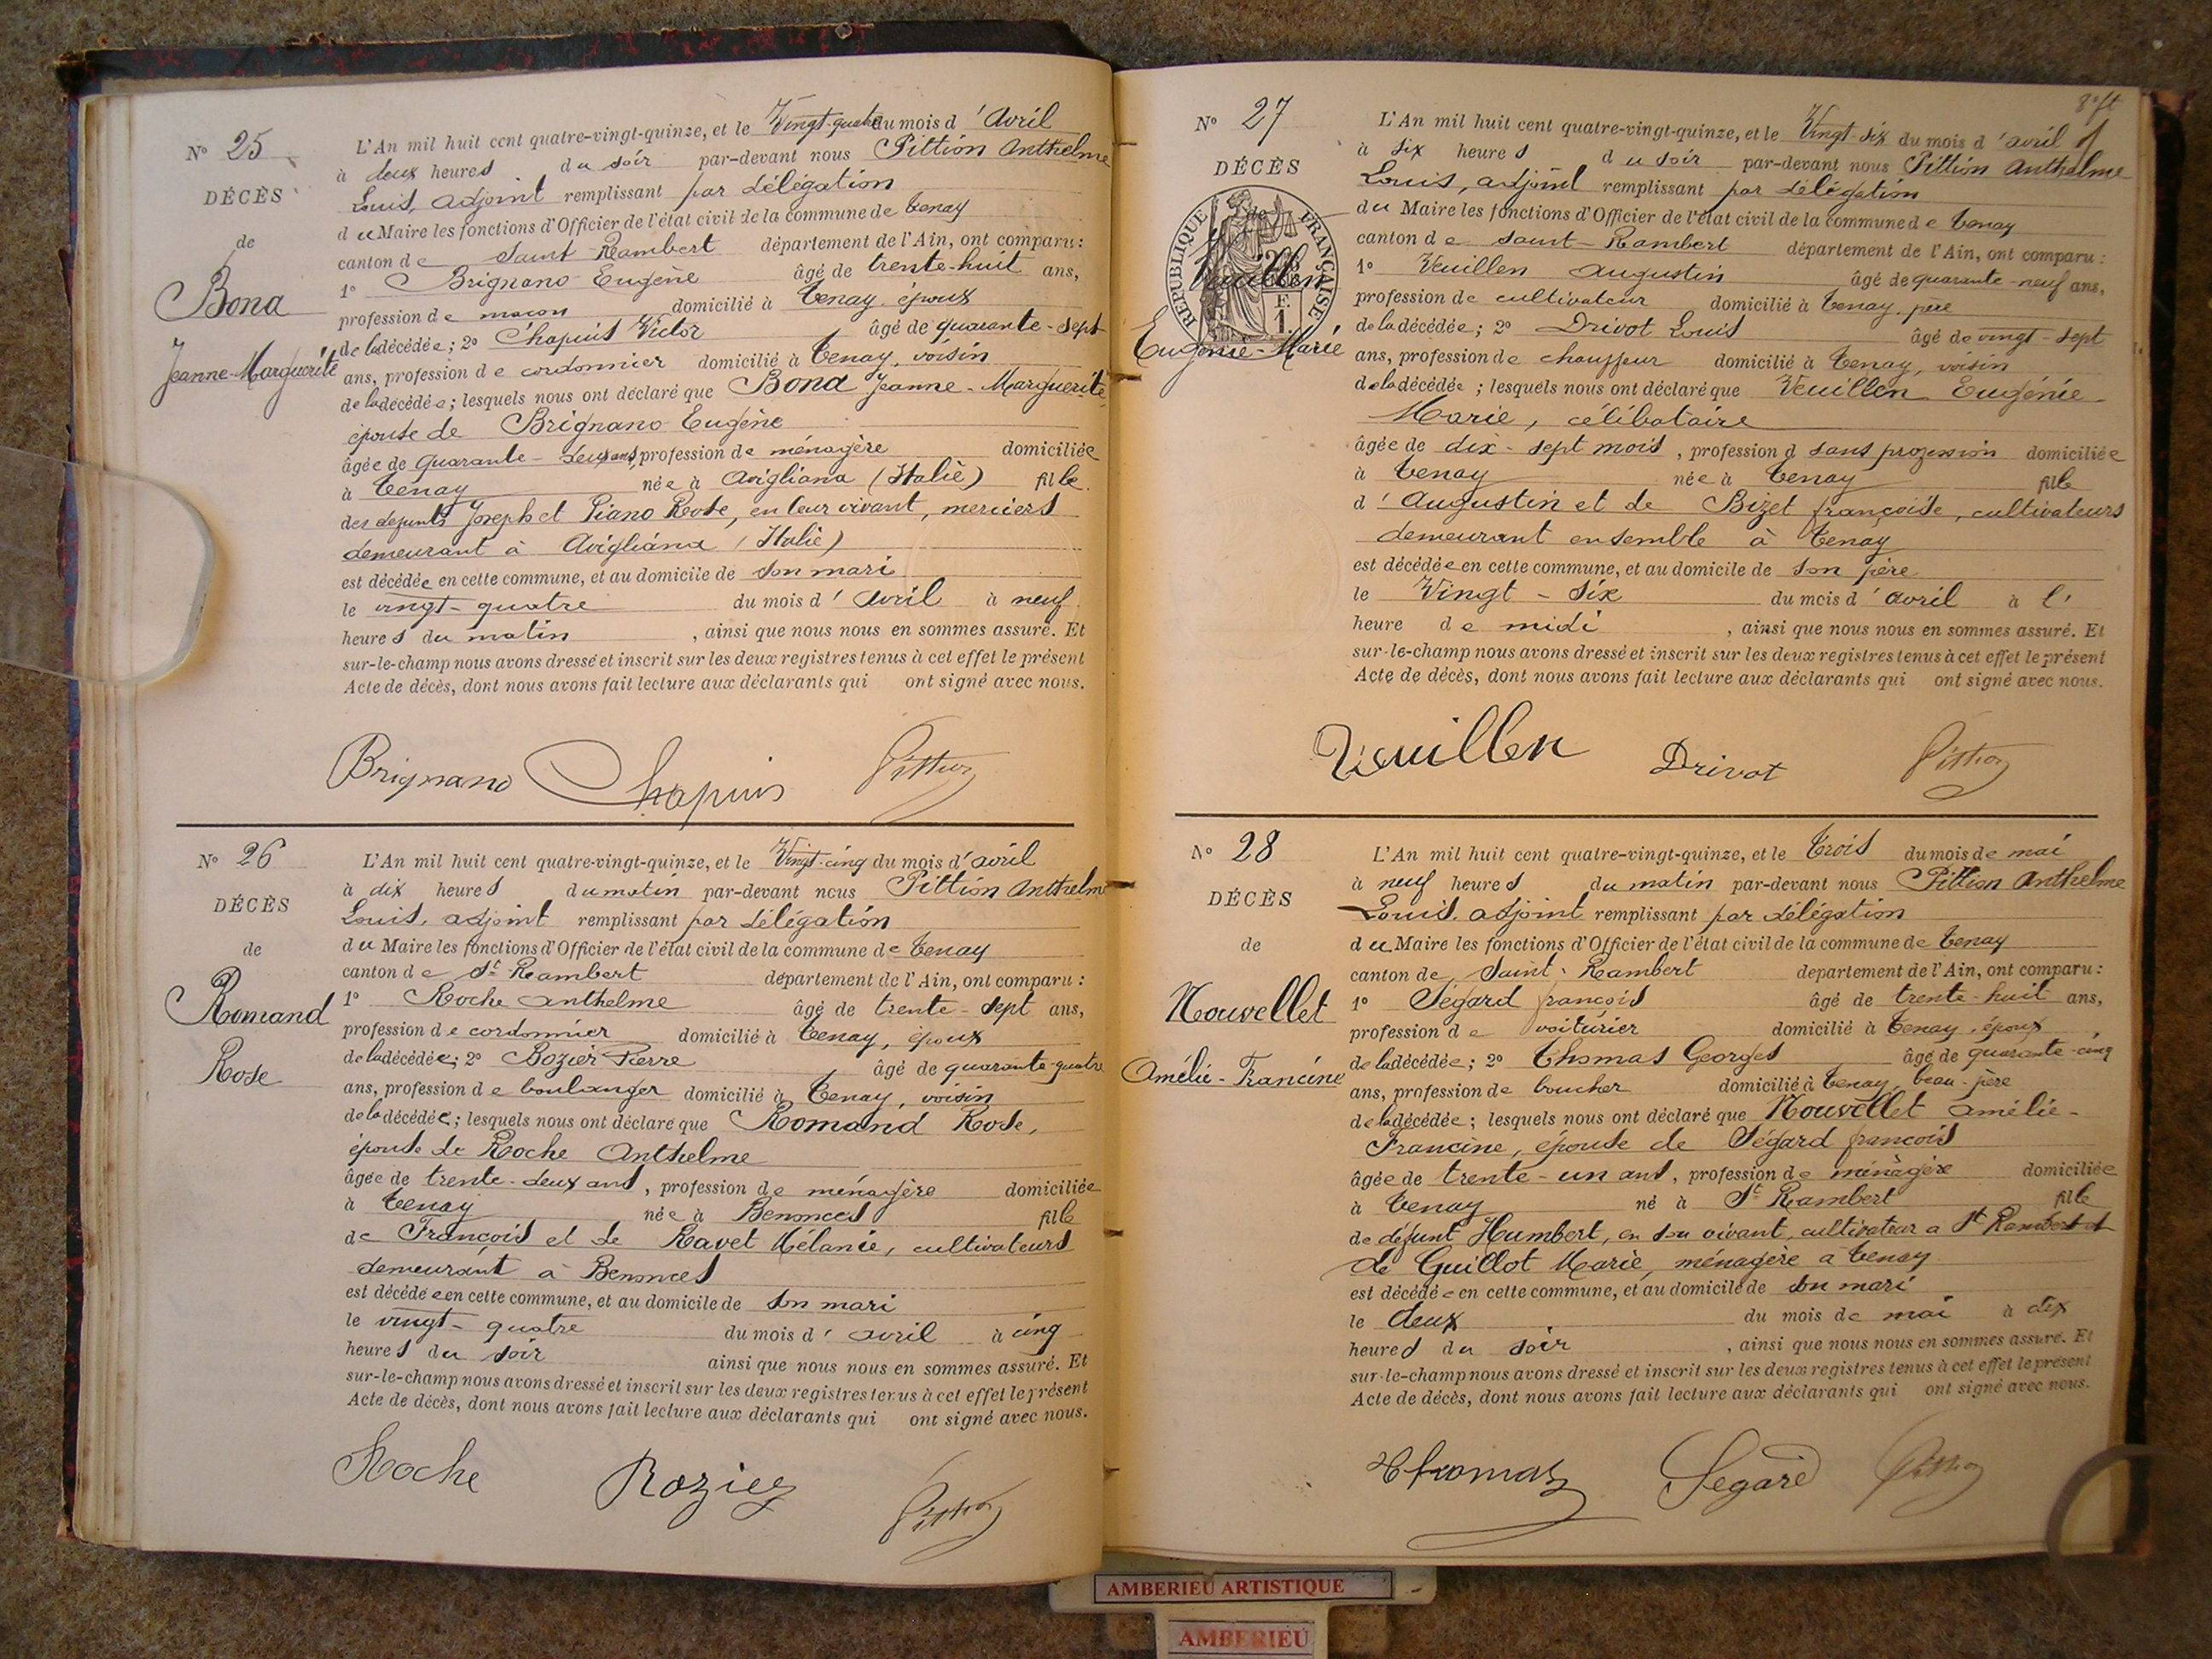 N° 25
DÉCÈS
de
Bona
Jeanne-Marguerite
L'An mil huit cent quatre-vingt-quinze, et le Vingt-quatre du mois d'Avril
à deux heures du soir par-devant nous Pittion Anthelme
Louis, adjoint remplissant par délégation
du Maire les fonctions d'Officier de l'état civil de la commune de Tenay
canton de Saint-Rambert département de l'Ain, ont comparu :
1° Brignano Eugène âgé de trente-huit ans,
profession de maçon domicilié à Tenay, époux
de la décédée ; 2° Chapuis Victor âgé de quarante-sept
ans, profession de cordonnier domicilié à Tenay, voisin
de la décédée ; lesquels nous ont déclaré que Bona Jeanne-Marguerite
épouse de Brignano Eugène
âgée de quarante-deux ans, profession de ménagère domiciliée
à Tenay née à Avigliana (Italie) fille
des défunts Joseph et Piano Rose, en leur vivant, merciers
demeurant à Avigliana (Italie)
est décédée en cette commune, et au domicile de son mari
le vingt-quatre du mois d'avril à neuf
heures du matin, ainsi que nous nous en sommes assuré. Et
sur-le-champ nous avons dressé et inscrit sur les deux registres tenus à cet effet le présent
Acte de décès, dont nous avons fait lecture aux déclarants qui ont signé avec nous.
Brignano Chapuis Pittion
N° 26
DÉCÈS
de
Romand
Rose
L'An mil huit cent quatre-vingt-quinze, et le Vingt-cinq du mois d'avril
à dix heures du matin par-devant nous Pittion Anthelme
Louis, adjoint remplissant par délégation
du Maire les fonctions d'Officier de l'état civil de la commune de Tenay
canton de St Rambert département de l'Ain, ont comparu :
1° Roche Anthelme âgé de trente-sept ans,
profession de cordonnier domicilié à Tenay, époux
de la décédée ; 2° Rozier Pierre âgé de quarante-quatre
ans, profession de boulanger domicilié à Tenay, voisin
de la décédée ; lesquels nous ont déclaré que Romand Rose,
épouse de Roche Anthelme
âgée de trente-deux ans, profession de ménagère domiciliée
à Tenay née à Benonces fille
de François et de Ravet Mélanie, cultivateurs
demeurant à Benonces
est décédée en cette commune, et au domicile de son mari
le vingt-quatre du mois d'avril à cinq
heures du soir ainsi que nous nous en sommes assuré. Et
sur-le-champ nous avons dressé et inscrit sur les deux registres tenus à cet effet le présent
Acte de décès, dont nous avons fait lecture aux déclarants qui ont signé avec nous.
Roche Rozier Pittion
8e ft
N° 27
DÉCÈS
RÉPUBLIQUE FRANÇAISE
Veuillen
Eugénie-Marie
L'An mil huit cent quatre-vingt-quinze, et le Vingt-six du mois d'avril
à six heures du soir par-devant nous Pittion Anthelme
Louis, adjoint remplissant par délégation
du Maire les fonctions d'Officier de l'état civil de la commune de Tenay
canton de Saint-Rambert département de l'Ain, ont comparu :
1° Veuillen Augustin âgé de quarante-neuf ans,
profession de cultivateur domicilié à Tenay, père
de la décédée ; 2° Drivot Louis âgé de vingt-sept
ans, profession de chauffeur domicilié à Tenay, voisin
de la décédée ; lesquels nous ont déclaré que Veuillen Eugénie
Marie, célibataire
âgée de dix-sept mois, profession d sans profession domiciliée
à Tenay née à Tenay fille
d'Augustin et de Bizet françoise, cultivateurs
demeurant ensemble à Tenay
est décédée en cette commune, et au domicile de son père
le Vingt-Six du mois d'avril à l'
heure de midi, ainsi que nous nous en sommes assuré. Et
sur-le-champ nous avons dressé et inscrit sur les deux registres tenus à cet effet le présent
Acte de décès, dont nous avons fait lecture aux déclarants qui ont signé avec nous.
Veuillen Drivot Pittion
N° 28
DÉCÈS
de
Nouvellet
Amélie-Francine
L'An mil huit cent quatre-vingt-quinze, et le Trois du mois de mai
à neuf heures du matin par-devant nous Pittion Anthelme
Louis, adjoint remplissant par délégation
du Maire les fonctions d'Officier de l'état civil de la commune de Tenay
canton de Saint-Rambert département de l'Ain, ont comparu :
1° Ségard françois âgé de trente-huit ans,
profession de voiturier domicilié à Tenay, époux
de la décédée ; 2° Thomas Georges âgé de quarante-cinq
ans, profession de boucher domicilié à Tenay, beau-père
de la décédée ; lesquels nous ont déclaré que Nouvellet Amélie-
Francine, épouse de Ségard françois
âgée de trente-un ans, profession de ménagère domiciliée
à Tenay né à St Rambert fille
de défunt Humbert, en son vivant, cultivateur a St Rambert et
de Guillot Marie, ménagère a Tenay
est décédée en cette commune, et au domicile de son mari
le deux du mois de mai à dix
heures du soir, ainsi que nous nous en sommes assuré. Et
sur-le-champ nous avons dressé et inscrit sur les deux registres tenus à cet effet le présent
Acte de décès, dont nous avons fait lecture aux déclarants qui ont signé avec nous.
Thomas Segard Pittion
AMBERIEU ARTISTIQUE
AMBERIEU